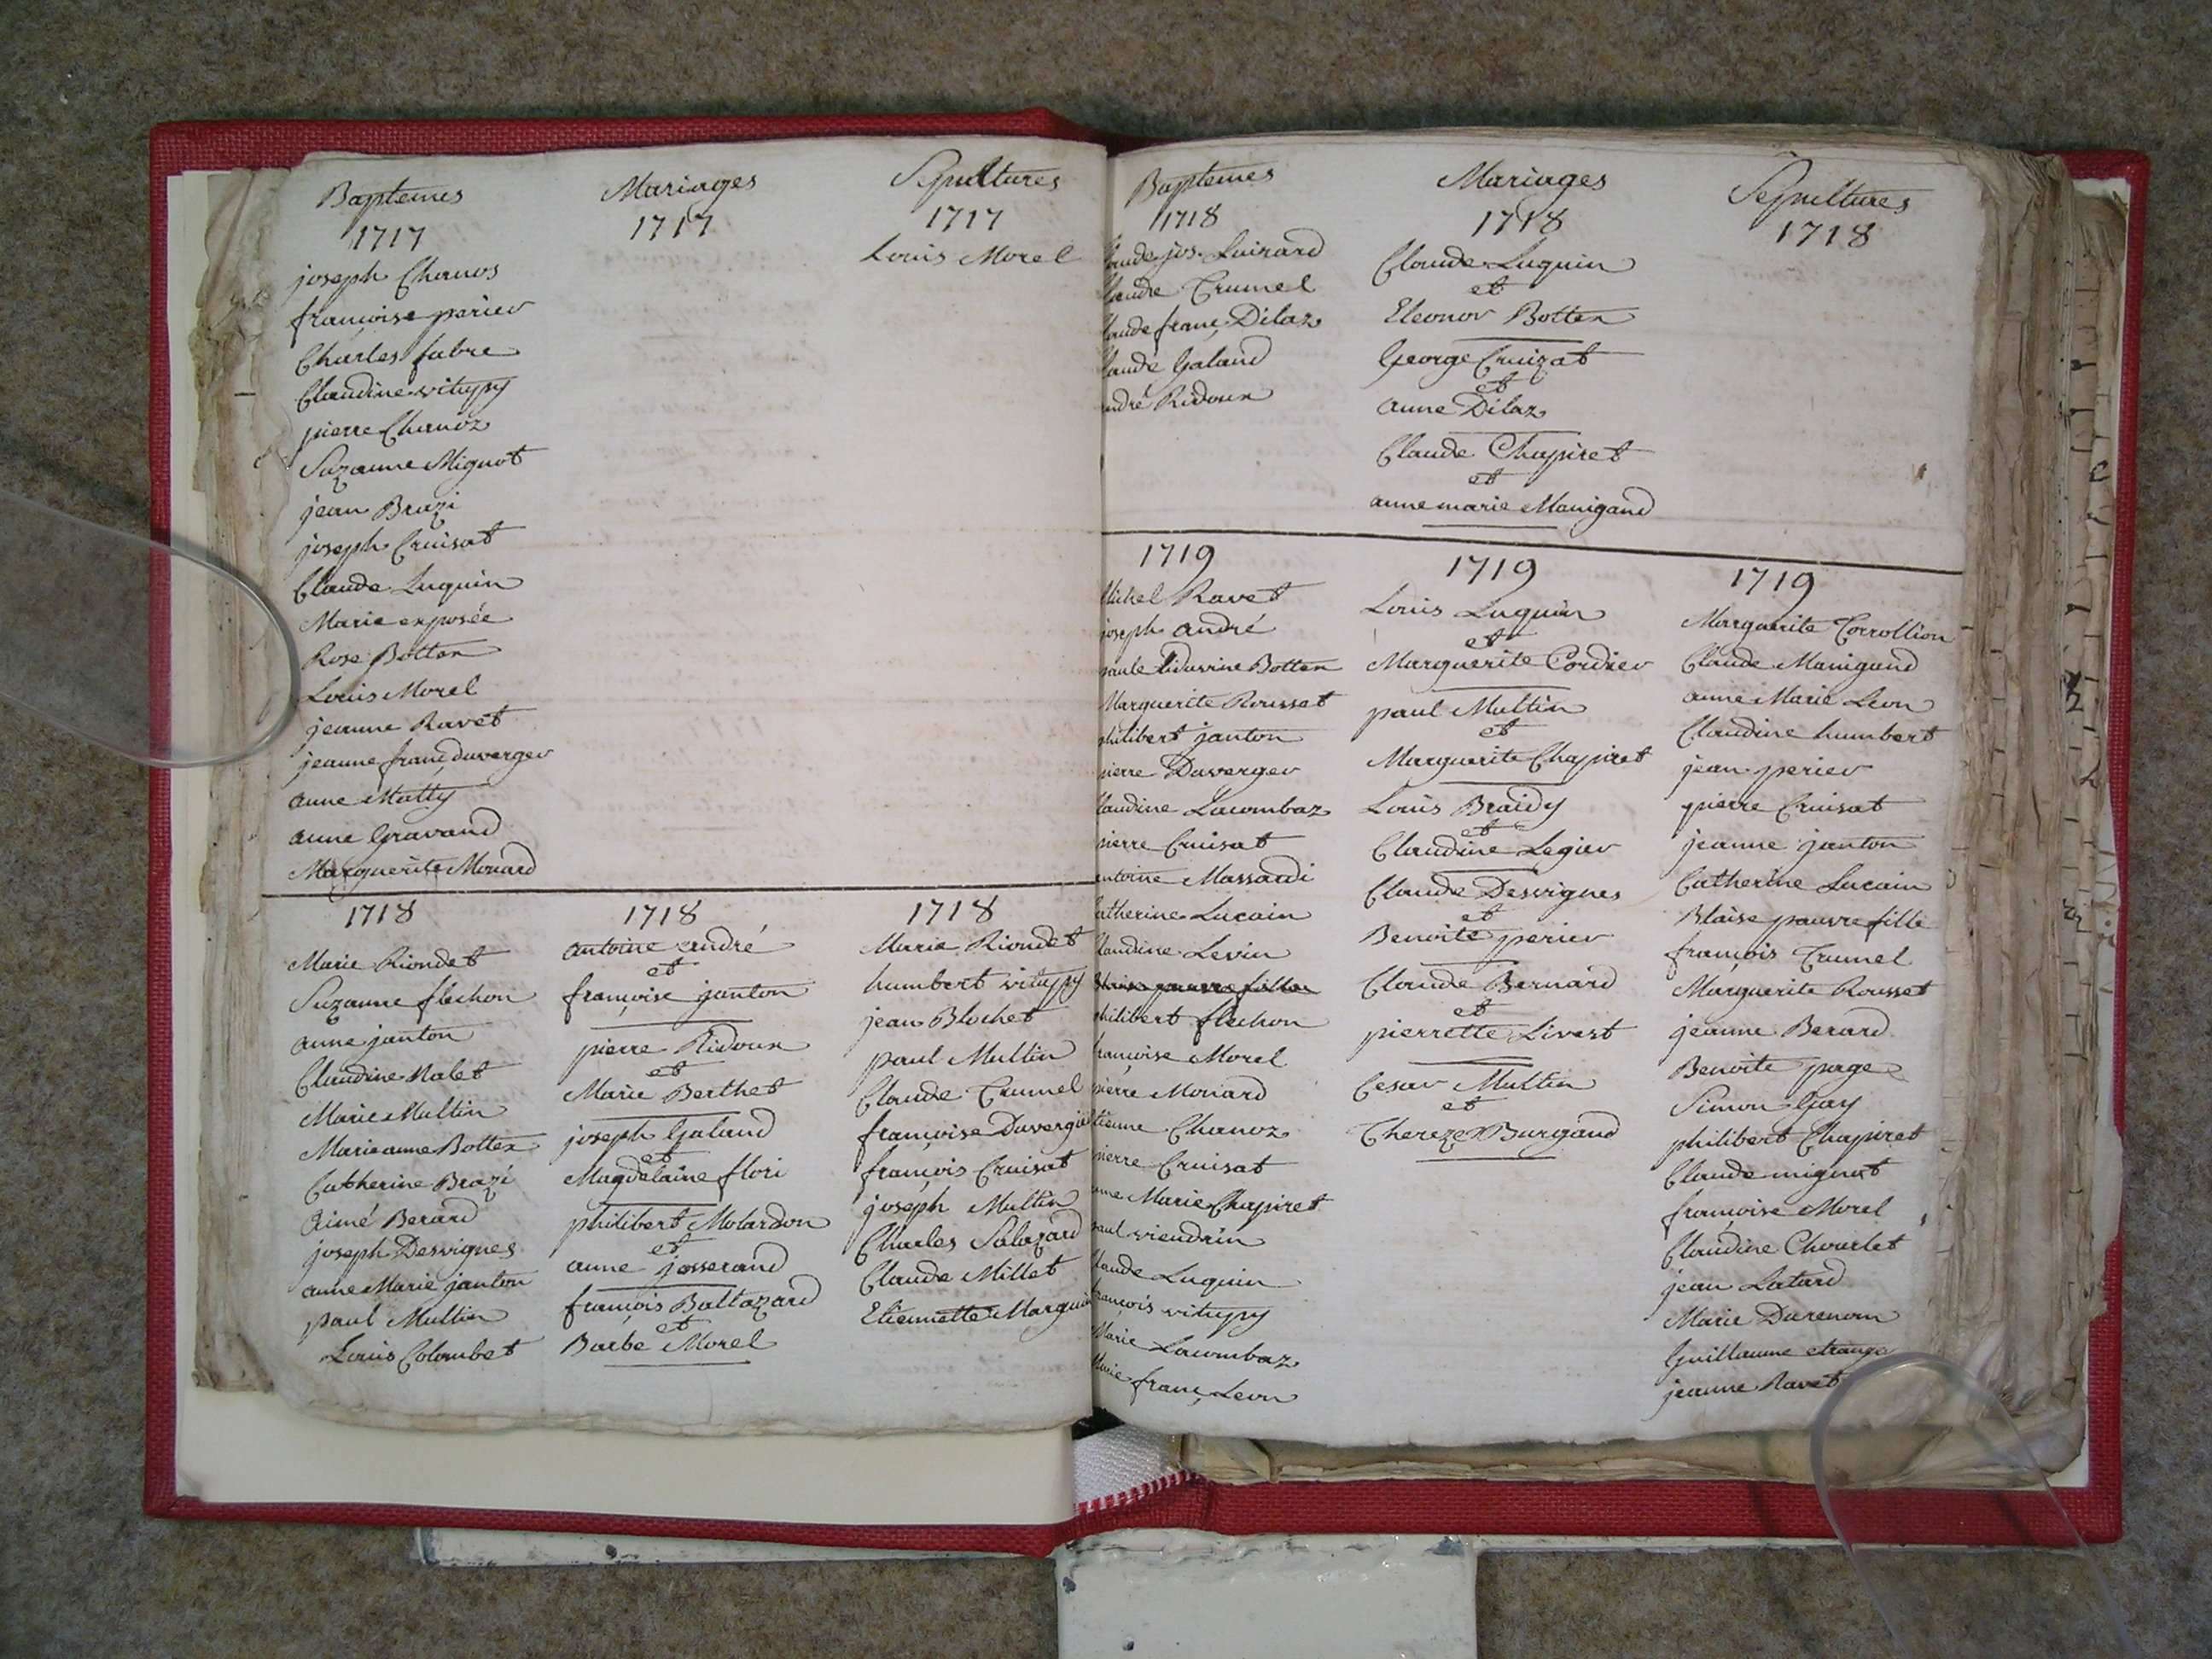 Baptemes
1717
joseph Chanos
françoise perier
Charles fabre
Claudine vituppy
pierre Chanoz
Suzanne Mignot
jean Brazi
joseph Cruisat
Claude Luquin
Marie exposée
Rose Botten
Louis Morel
jeanne Ravet
jeanne franç duverger
anne Matty
anne Gravand
Marguerite Monard
Mariages
1717
Sepultures
1717
Louis Morel
1718
Marie Riondet
Suzanne flechon
anne janton
Claudine Malet
Marie Multin
Marie anne Botten
Catherine Brazi
Aimé Berard
joseph Desvignes
anne Marie janton
paul Multin
Louis Colombet
1718
antoine andré
et
françoise janton
pierre Ridoux
et
Marie Berthet
joseph Galand
et
Magdelaine flori
philibert Molardon
et
anne josserand
françois Baltazard
et
Barbe Morel
1718
Marie Riondet
humbert vituppy
jean Blochet
paul Multin
Claude Trumel
françoise Duverg
françois Cruisat
joseph Multin
Charles Salazard
Claude Millet
Etiennette Marguin
Baptemes
1718
laude jos. Luirard
laude Trumel
laude franç Dilaz
laude Galand
ndré Ridoux
Mariages
1718
Claude Luquin
et
Eleonor Botten
George Cruizat
et
anne Dilaz
Claude Chapiret
et
anne marie Manigand
Sepultures
1718
1719
Michel Ravet
joseph andré
paule Botten
Marguerite Rousset
philibert janton
pierre Duverger
laudine Lacombaz
pierre Cruisat
antoine Massardi
atherine Lucain
laudine Levin
philibert flechon
françoise Morel
pierre Monard
tienne Chanoz
pierre Cruisat
nne Marie Chapiret
paul viendrin
laude Luquin
françois vituppy
Marie Lacombaz
Marie franç Leon
1719
Louis Luquin
et
Marguerite Cordier
paul Multin
et
Marguerite Chapiret
Louis Braidy
et
Claudine Legier
Claude Desvignes
et
Benoite perier
Claude Bernard
et
pierrette Livest
Cesar Multin
et
Thereze Burgand
1719
Marguerite Corrollion
Claude Manigand
anne Marie Leon
Claudine humbert
jean perier
pierre Cruisat
jeanne janton
Catherine Lucain
Blaise pauvre fille
françois Trumel
Marguerite Rousset
jeanne Berard
Benoite page
Simon Gay
philibert Chapiret
Claude mignot
françoise Morel
Claudine Chourlet
jean Latard
Marie Durenom
Guillaume etrange
jeanne Ravet